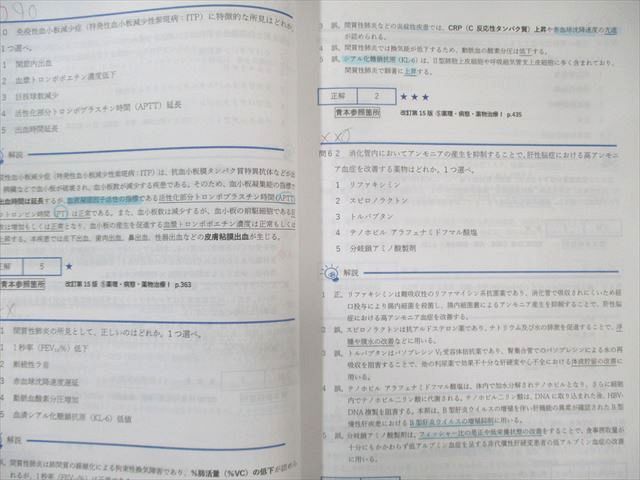 0 免疫性血小板減少症(特発性血小板減少性紫斑病:ITP)に特徴的な所見はどれか。
1つ選べ。
1 関節内出血
2 血漿トロンボポエチン濃度低下
3 巨核球数減少
4 活性化部分トロンボプラスチン時間(APTT)延長
5 出血時間延長
解説
性血小板減少症(特発性血小板減少性紫斑病:ITP)は、抗血小板膜タンパク質特異抗体などが出
病臓などで血小板が破壊され、血小板数が減少する疾患である。そのため、血小板凝集能の指標で
出血時間は延長するが、血液凝固因子活性の指標である活性化部分トロンボプラスチン時間(APTT)
トロンビン時間(PT)は正常である。また、血小板数は減少するが、血小板の前駆細胞である巨
数は増加もしくは正常となり、血小板の産生を促進する血漿トロンボポエチン濃度は正常もしくは
上昇する。本疾患では皮下出血、歯肉出血、鼻出血、性器出血などの皮膚粘膜出血が生じる。
正解 5 ★
青本参照箇所 改訂第15版 ⑤薬理・病態・薬物治療Ⅰ p.363
1 間質性肺炎の所見として、正しいのはどれか。1つ選べ。
1 1秒率(FEV1%)低下
2 断続性ラ音
3 赤血球沈降速度遅延
4 動脈血酸素分圧増加
5 血清シアル化糖鎖抗原(KL-6)低値
解説
誤。間質性肺炎は肺間質の線維化による拘束性換気障害であり、%肺活量(%VC)の低下が認め
3 誤。間質性肺炎などの炎症性疾患では、CRP(C 反応性タンパク質)上昇や赤血球沈降速度の亢進
が認められる。
4 誤。間質性肺炎では換気能が低下するため、動脈血の酸素分圧は低下する。
5 誤。シアル化糖鎖抗原(KL-6)は、Ⅱ型肺胞上皮細胞や呼吸細気管支上皮細胞に多く含まれており、
間質性肺炎で顕著に上昇する。
正解 2 ★★★
青本参照箇所 改訂第15版 ⑤薬理・病態・薬物治療Ⅰ p.435
問62 消化管内においてアンモニアの産生を抑制することで、肝性脳症における高アンモニ
ア血症を改善する薬物はどれか。1つ選べ。
1 リファキシミン
2 スピロノラクトン
3 トルバプタン
4 テノホビル アラフェナミドフマル酸塩
5 分岐鎖アミノ酸製剤
解説
1 正。リファキシミンは難吸収性のリファマイシン系抗菌薬であり、消化管で吸収されにくいため経
口投与により腸内細菌を殺菌し、腸内細菌叢によるアンモニア産生を抑制することで、肝性脳
症における高アンモニア血症を改善する。
2 誤。スピロノラクトンは抗アルドステロン薬であり、ナトリウム及び水の排泄を促進することで、浮
腫や腹水の改善などに用いる。
3 誤。トルバプタンはバソプレシンV2受容体拮抗薬であり、腎集合管でのバソプレシンによる水の再
吸収を阻害することで、他の利尿薬で効果不十分な肝硬変や心不全における体液貯留の改善に
用いる。
4 誤。テノホビル アラフェナミドフマル酸塩は、体内で加水分解されテノホビルとなり、さらに細胞
内でテノホビル二リン酸に代謝される。テノホビル二リン酸は、DNAに取り込まれた後、HBV-
DNA複製を阻害する。本剤は、B型肝炎ウイルスの増殖を伴い肝機能の異常が確認されたB型
慢性肝疾患におけるB型肝炎ウイルスの増殖抑制に用いる。
5 誤。分岐鎖アミノ酸製剤は、フィッシャー比の是正や低栄養状態の改善をすることで、食事摂取量が
十分にもかかわらず低アルブミン血症を呈する非代償性肝硬変患者の低アルブミン血症の改善
に用いる。